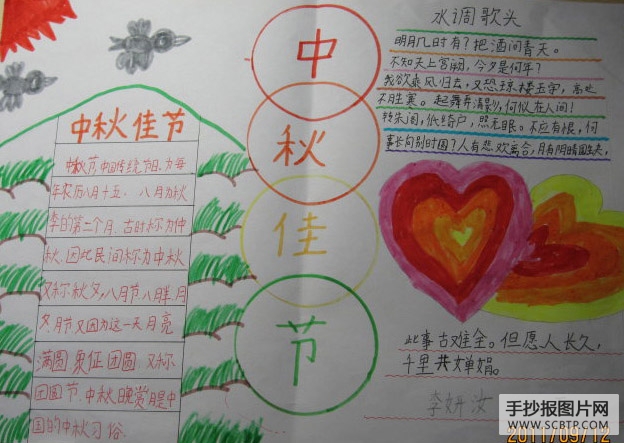 中秋佳节
中秋节中国传统节日,为每
年农历八月十五、八月为秋
季的第二个月,古时称为仲
秋,因此民间称为中秋
又称秋夕,八月节八月半,月
夕,月节又因为这一天月亮
满圆,象征团圆.又称
团圆节.中秋晚赏月是中
国的中秋习俗.
中
秋
佳
节
水调歌头
明月几时有?把酒问青天。
不知天上宫阙,今夕是何年?
我欲乘风归去,又恐琼楼玉宇,高处
不胜寒。起舞弄清影,何似在人间!
转朱阁,低绮户,照无眠。不应有恨,何
事长向别时圆?人有悲欢离合,月有阴晴圆缺,
此事古难全。但愿人长久,
千里共婵娟。
李妍汝
手抄报图片网
WWW.SCBTP.COM
2011/09/12